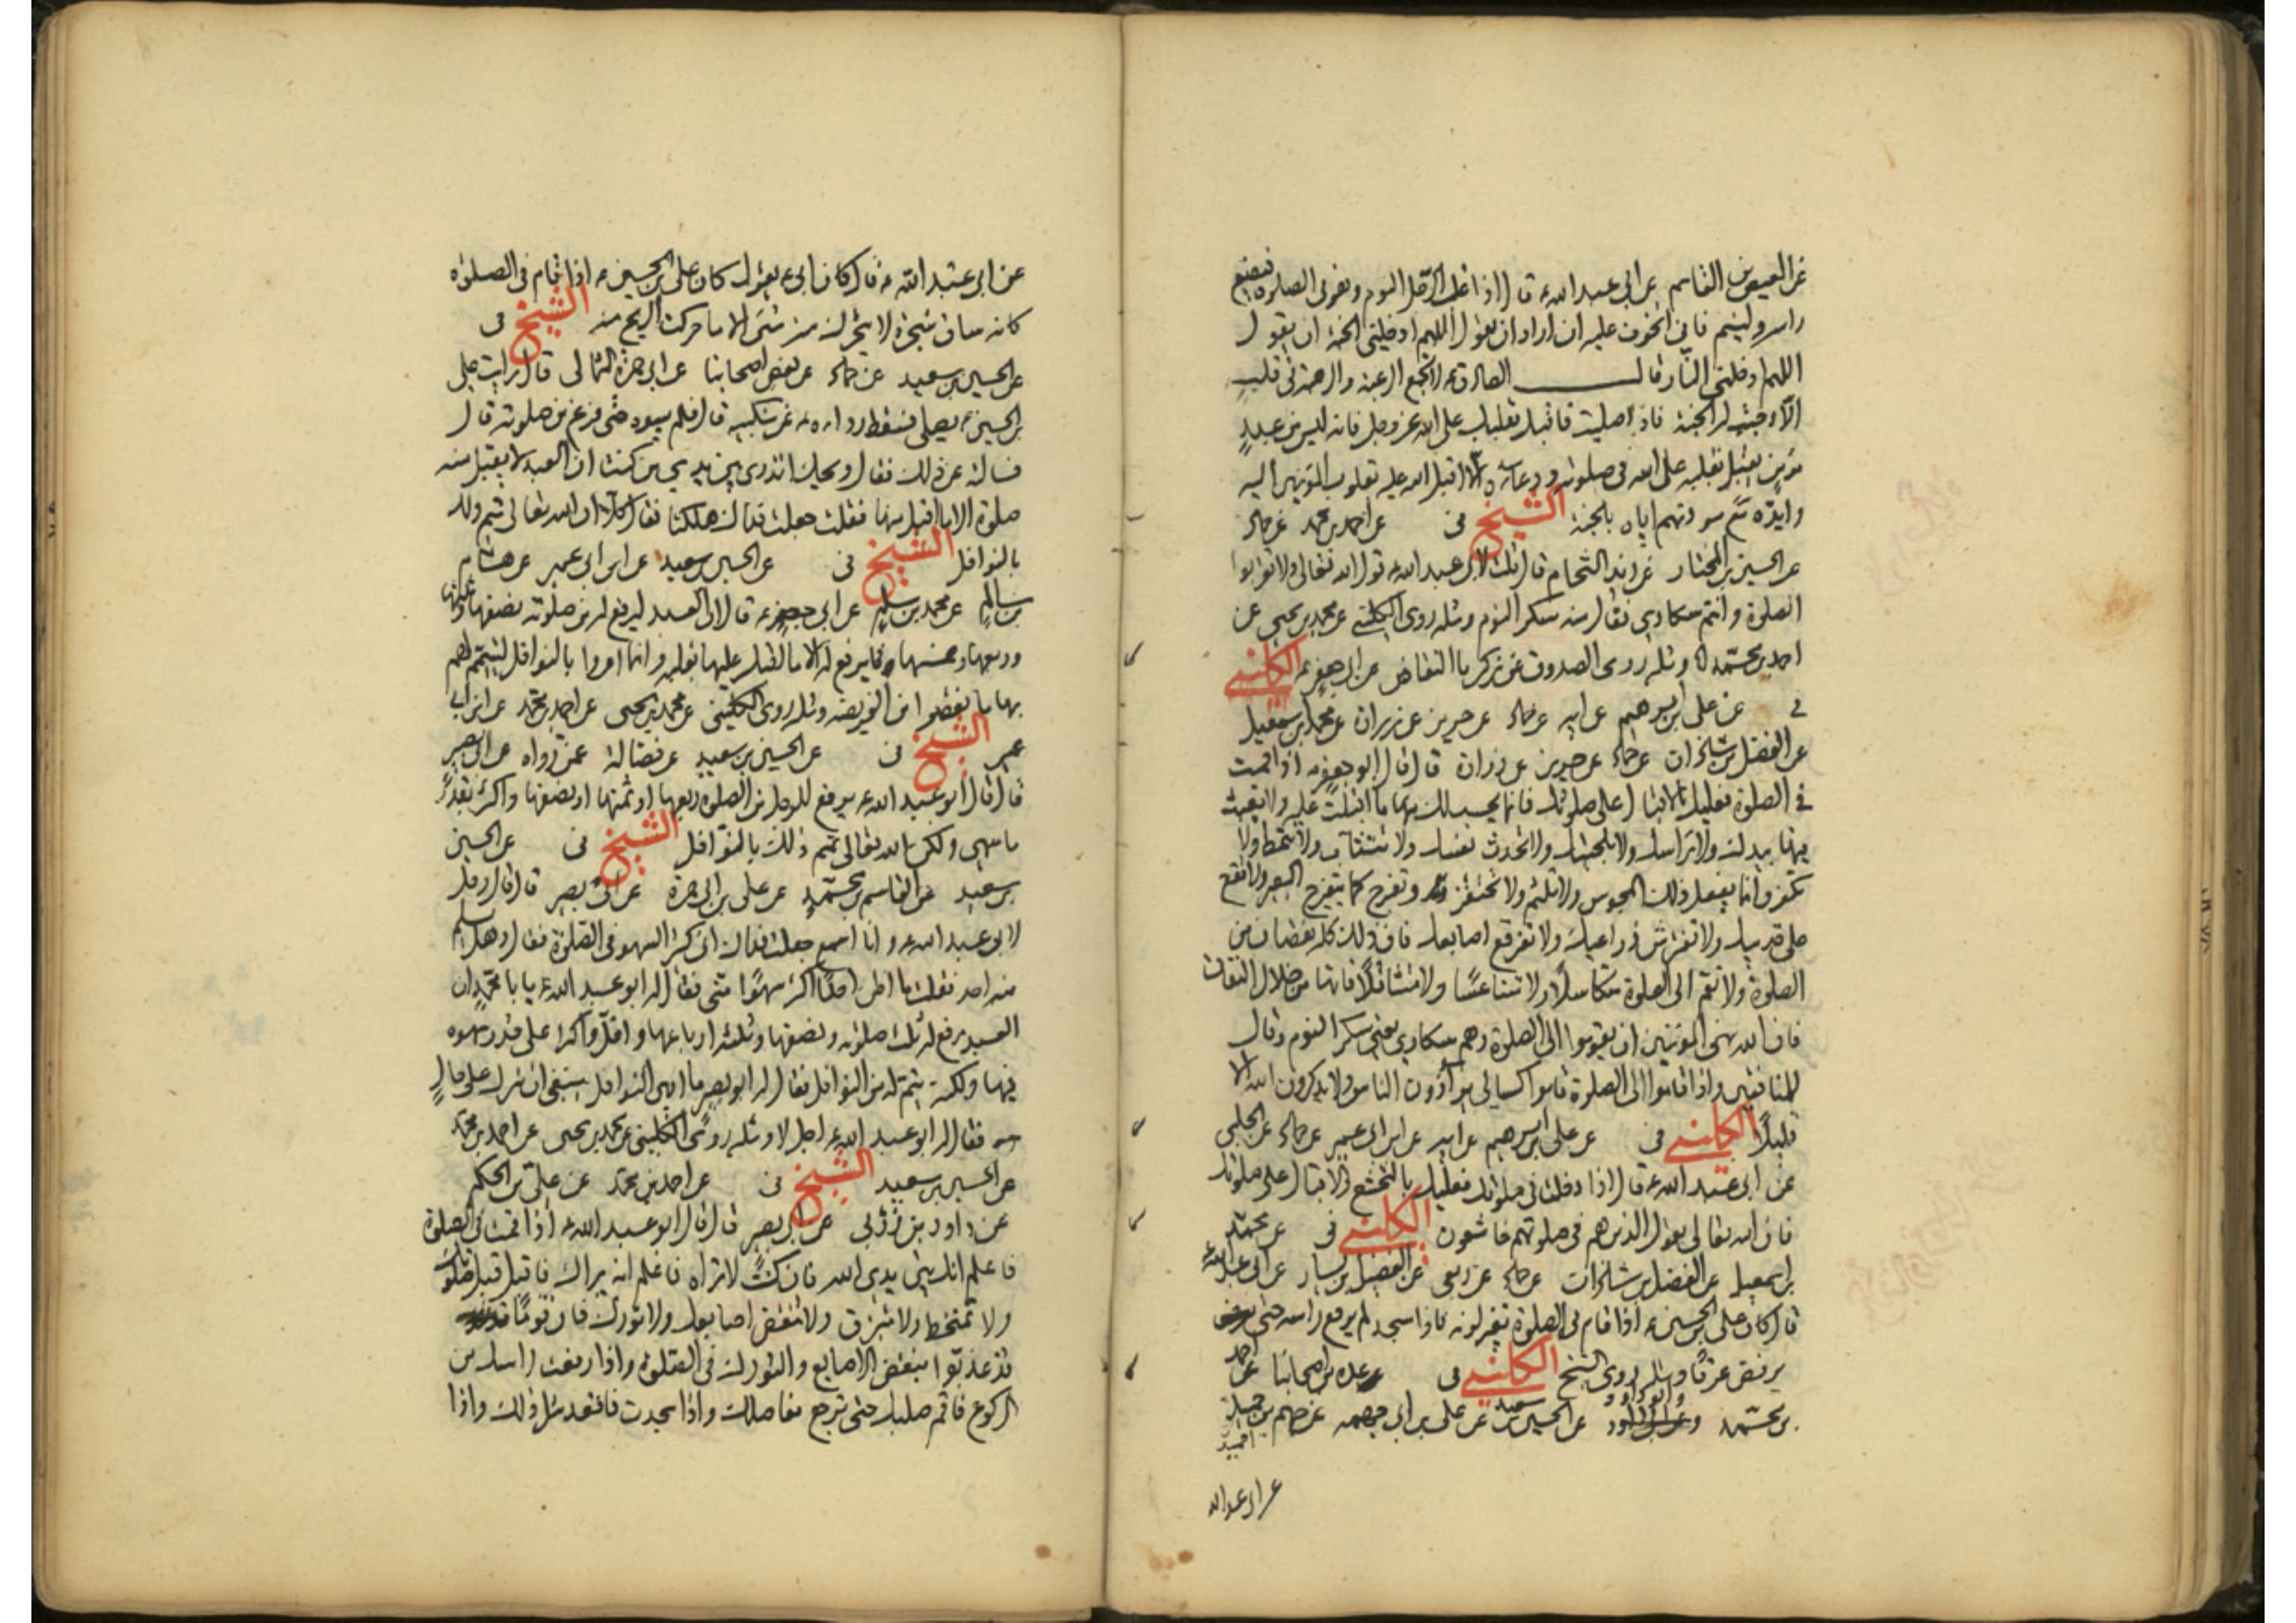 عن العيص بن القاسم عن ابي عبد الله ع قال اذا غلب الرجل النوم وهو في الصلوة فليضع
راسه ولينم فاني اتخوف عليه ان اراد ان يقول اللهم ادخلني الجنة ان يقول
اللهم ادخلني النار قال الصادق ع لا تجتمع الرغبة والرهبة في قلب
الا وجبت له الجنة فاذا صليت فاقبل بقلبك على الله عز وجل فانه ليس من عبد
مؤمن يقبل بقلبه على الله في صلوته ودعائه الا اقبل الله عليه بقلوب المؤمنين اليه
وايده مع مودتهم اياه بالجنة الشيخ في عن احمد بن محمد عن حماد
عن الحسين بن المختار عن زيد الشحام قال قلت لابي عبد الله ع قول الله تعالى ولا تقربوا
الصلوة وانتم سكارى فقال منه سكر النوم ومثله روى الكليني عن محمد بن يحيى عن
احمد بن محمد ومثله روى الصدوق عن زكريا النقاض عن ابي جعفر ع الكليني
في عن علي بن ابرهيم عن ابيه عن حماد عن حريز عن زرارة عن محمد بن اسمعيل
عن الفضل بن شاذان عن حماد عن حريز عن زرارة قال قال ابو جعفر ع اذا قمت
في الصلوة فعليك بالاقبال على صلوتك فانما يحسب لك منها ما اقبلت عليه ولا تعبث
فيها بيدك ولا براسك ولا بلحيتك ولا تحدث نفسك ولا تتثائب ولا تتمط ولا
تكفر فانما يفعل ذلك المجوس ولا تلثم ولا تحتفز وتفرج كما يتفرج البعير ولا تقع
على قدميك ولا تفترش ذراعيك ولا تفرقع اصابعك فان ذلك كله نقصان من
الصلوة ولا تقم الى الصلوة متكاسلا ولا متناعسا ولا متثاقلا فانها من خلال النفاق
فان الله نهى المؤمنين ان يقوموا الى الصلوة وهم سكارى يعني سكر النوم وقال
للمنافقين واذا قاموا الى الصلوة قاموا كسالى يراؤون الناس ولا يذكرون الله الا
قليلا الكليني في عن علي بن ابرهيم عن ابيه عن ابن ابي عمير عن حماد عن الحلبي
عن ابي عبد الله ع قال اذا دخلت في صلوتك فعليك بالتخشع والاقبال على صلوتك
فان الله تعالى يقول الذين هم في صلوتهم خاشعون الكليني في عن محمد
بن اسمعيل عن الفضل بن شاذان عن حماد عن ربعي عن الفضيل بن يسار عن ابي عبد الله ع
قال كان علي بن الحسين ع اذا قام في الصلوة تغير لونه فاذا سجد لم يرفع راسه حتى
يرفض عرقا ومثله روى الشيخ الكليني في عن عدة من اصحابنا عن احمد
بن محمد وابو داود عن الحسين بن سعيد عن علي بن ابي جهمة عن جهم بن حميد
عن ابي عبد الله
عن ابي عبد الله ع قال كان ابي ع يقول كان علي بن الحسين ع اذا قام في الصلوة
كانه ساق شجرة لا يتحرك منه شئ الا ما حركت الريح منه الشيخ في
عن الحسين بن سعيد عن حماد عن بعض اصحابنا عن ابي حمزة الثمالي قال رايت علي
بن الحسين ع يصلي فسقط رداءه عن منكبيه قال فلم يسوه حتى فرغ من صلوته قال
فسالته عن ذلك فقال ويحك اتدري بين يدي من كنت ان العبد لا يقبل منه
صلوة الا ما اقبل منها فقلت جعلت فداك هلكنا فقال كلا ان الله تعالى يتم ذلك
بالنوافل الشيخ في عن الحسين بن سعيد عن ابن ابي عمير عن هشام
بن سالم عن محمد بن مسلم عن ابي جعفر ع قال ان العبد ليرفع له من صلوته نصفها وثلثها
وربعها وخمسها فما يرفع له الا ما اقبل عليها بقلبه وانما امروا بالنوافل ليتم لهم
بها ما نقصوا من الفريضة ومثله روى الكليني عن محمد بن يحيى عن احمد بن محمد عن ابن ابي
عمير الشيخ في عن الحسين بن سعيد عن فضالة عمن رواه عن ابي بصير
قال قال ابو عبد الله ع يرفع للرجل من الصلوة ربعها او ثمنها او نصفها واكثر بقدر
ما سهى ولكن الله تعالى يتمم ذلك بالنوافل الشيخ في عن الحسين
بن سعيد عن القاسم بن محمد عن علي بن ابي حمزة عن ابي بصير قال قال رجل
لابي عبد الله ع وانا اسمع جعلت فداك اني كثير السهو في الصلوة فقال وهل يسلم
منه احد فقلت ما اظن احدا اكثر سهوا مني فقال له ابو عبد الله ع يا با محمد ان
العبد يرفع له ثلث صلوته ونصفها وثلثة ارباعها واقل واكثر على قدر سهوه
فيها ولكنه يتم له من النوافل فقال له ابو بصير ما ارى النوافل ينبغي ان تترك على حال
فقال ابو عبد الله ع اجل لا ومثله روى الكليني عن محمد بن يحيى عن احمد بن محمد
عن الحسين بن سعيد الشيخ في عن احمد بن محمد عن علي بن الحكم
عن داود بن زربي عن ابي بصير قال قال ابو عبد الله ع اذا قمت في الصلوة
فاعلم انك بين يدي الله فان كنت لا تراه فاعلم انه يراك فاقبل قبل صلوتك
ولا تمتخط ولا تبزق ولا تنقض اصابعك ولا تورك فان قوما
قد عذبوا بنقض الاصابع والتورك في الصلوة واذا رفعت راسك من
الركوع فاقم صلبك حتى ترجع مفاصلك واذا سجدت فاقعد مثل ذلك واذا